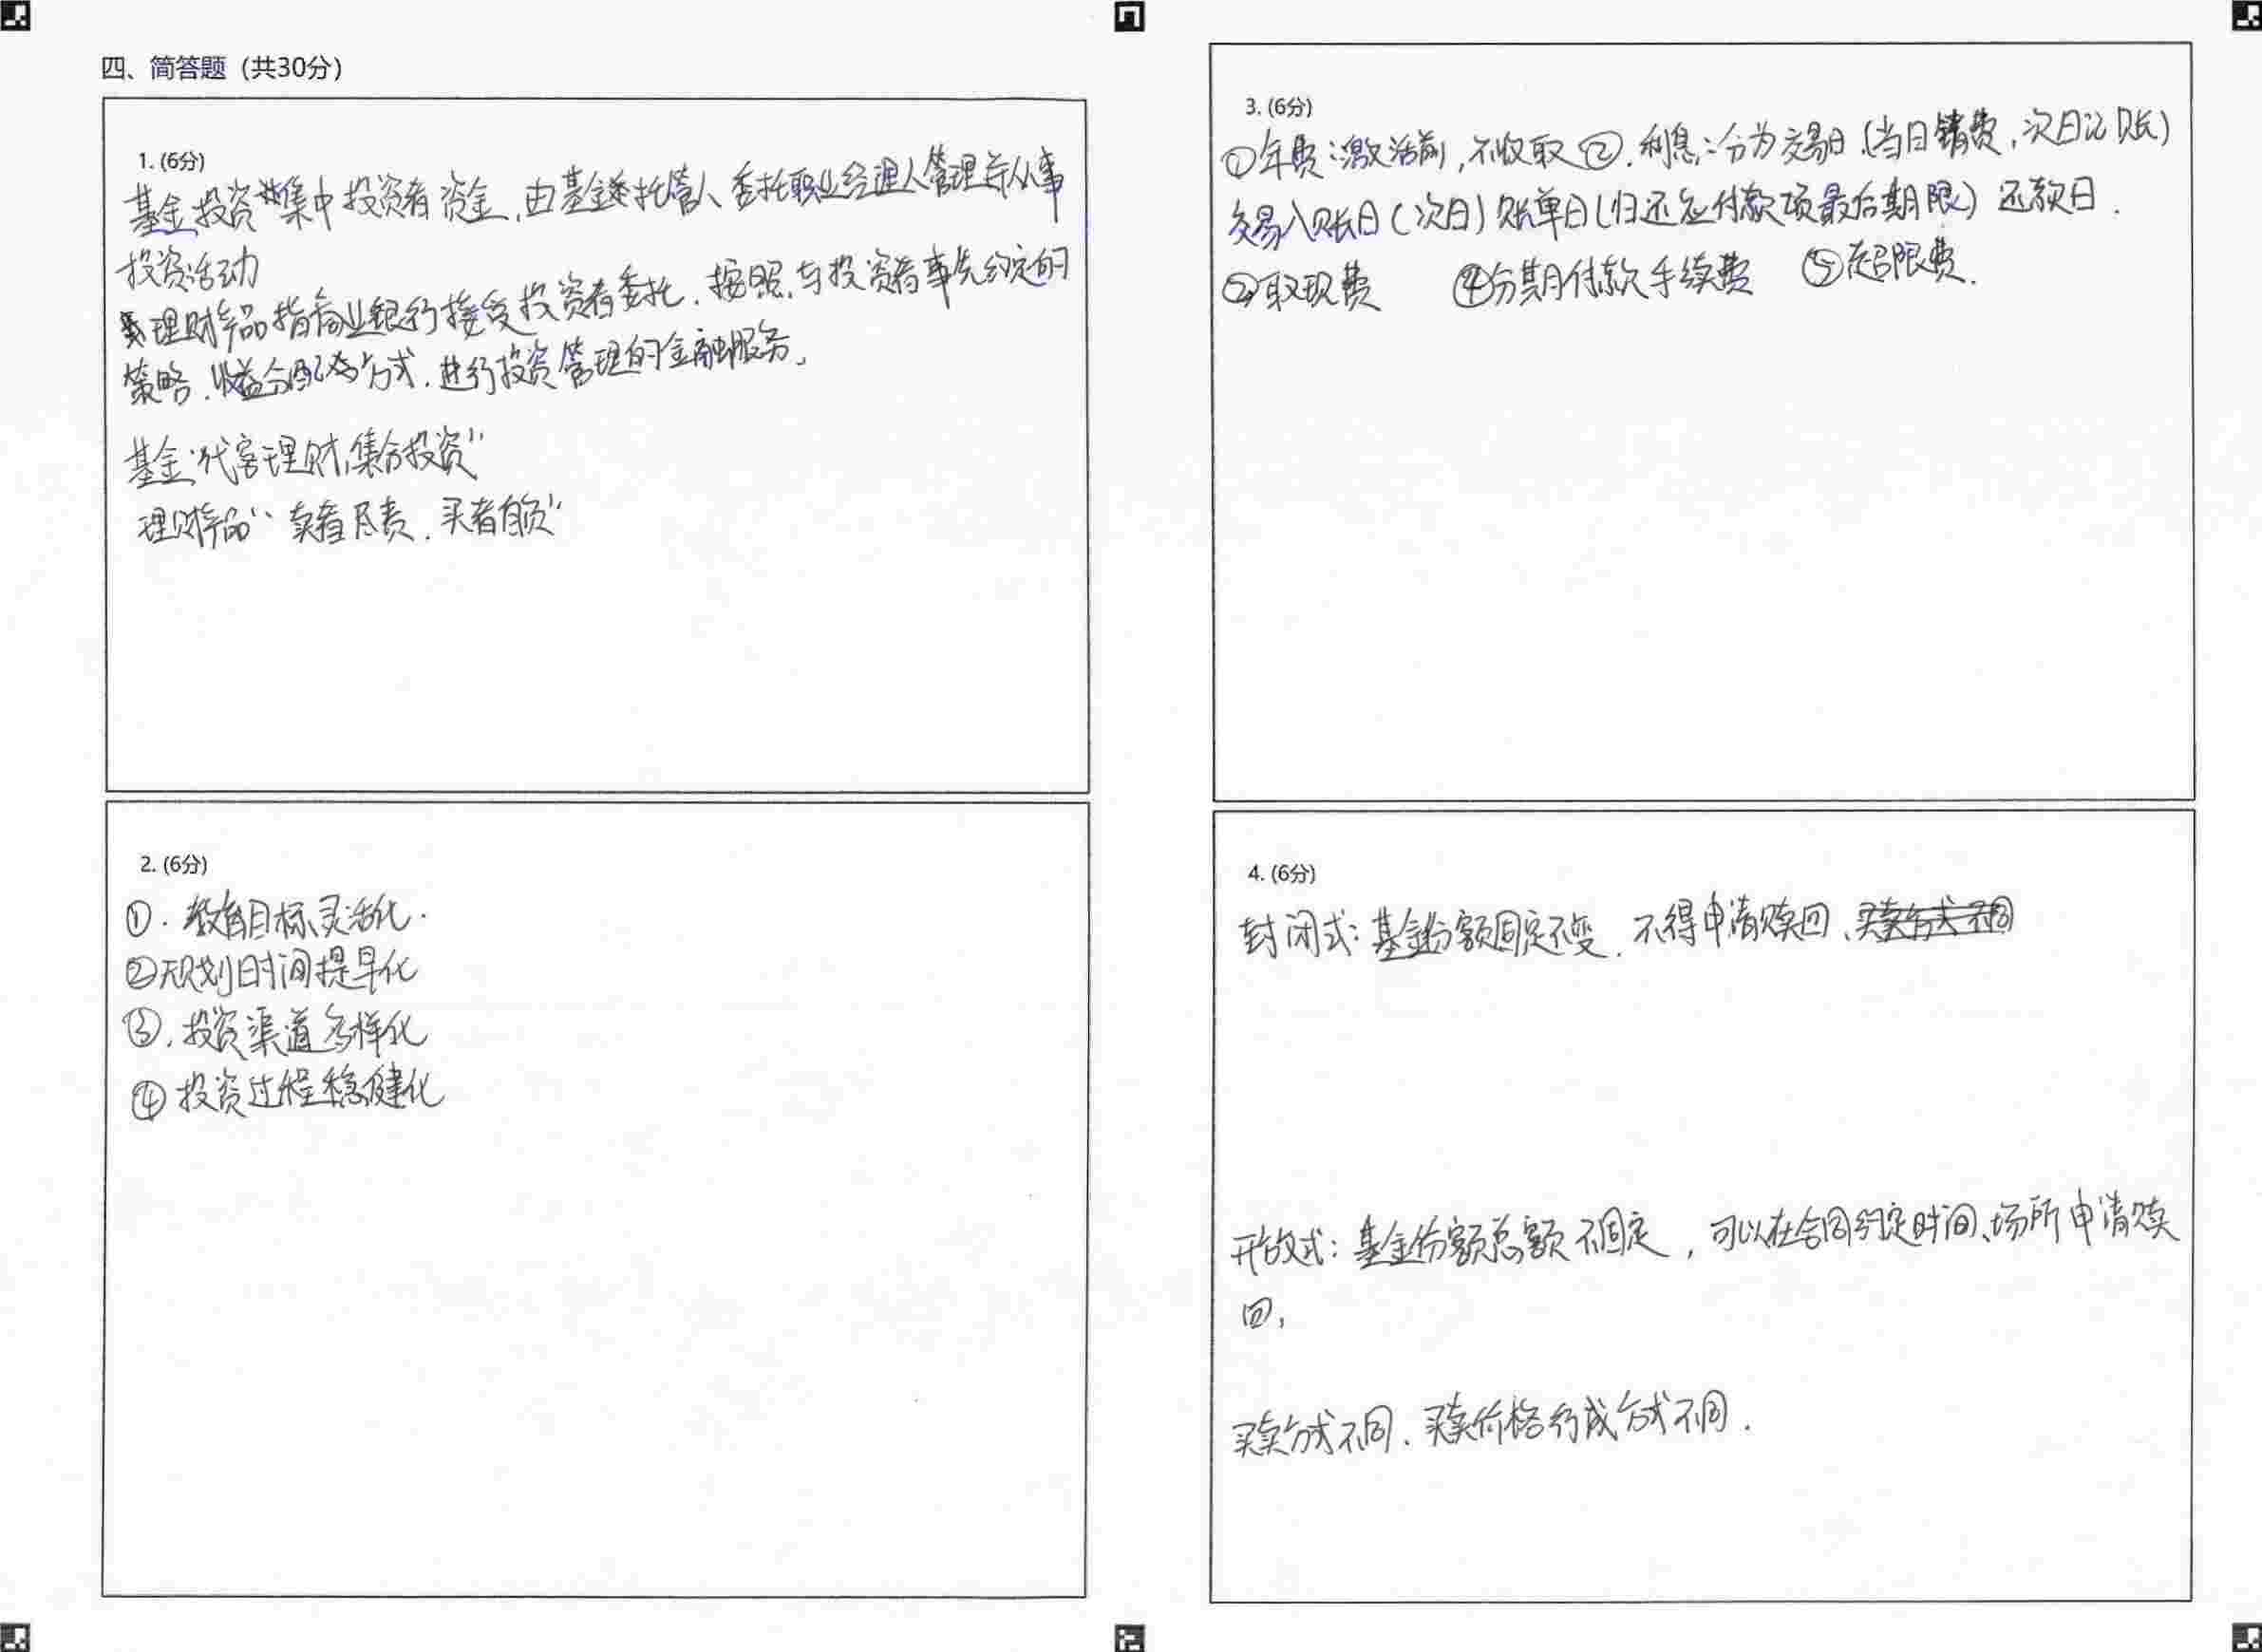 四、简答题（共30分）
1. (6分)
基金投资集中投资者资金,由基金托管人委托职业经理人管理并从事
投资活动
理财产品指商业银行接受投资者委托.按照.与投资者事先约定的
策略.收益分配方式.进行投资管理的金融服务。
基金"代客理财,集合投资"
理财产品"卖者尽责.买者自负"
2. (6分)
①.教育目标灵活化.
②规划时间提早化
③.投资渠道多样化
④投资过程稳健化
3. (6分)
①年费:激活前,不收取②.利息:分为交易日(当日销费,次日记账)
交易入账日(次日)账单日(归还应付款项最后期限)还款日.
③取现费 ④分期付款手续费 ⑤超限费.
4. (6分)
封闭式:基金份额固定不变.不得申请赎回、买卖方式不同
开放式:基金份额总额不固定,可以在合同约定时间、场所申请赎
回,
买卖方式不同.买卖价格行成方式不同.